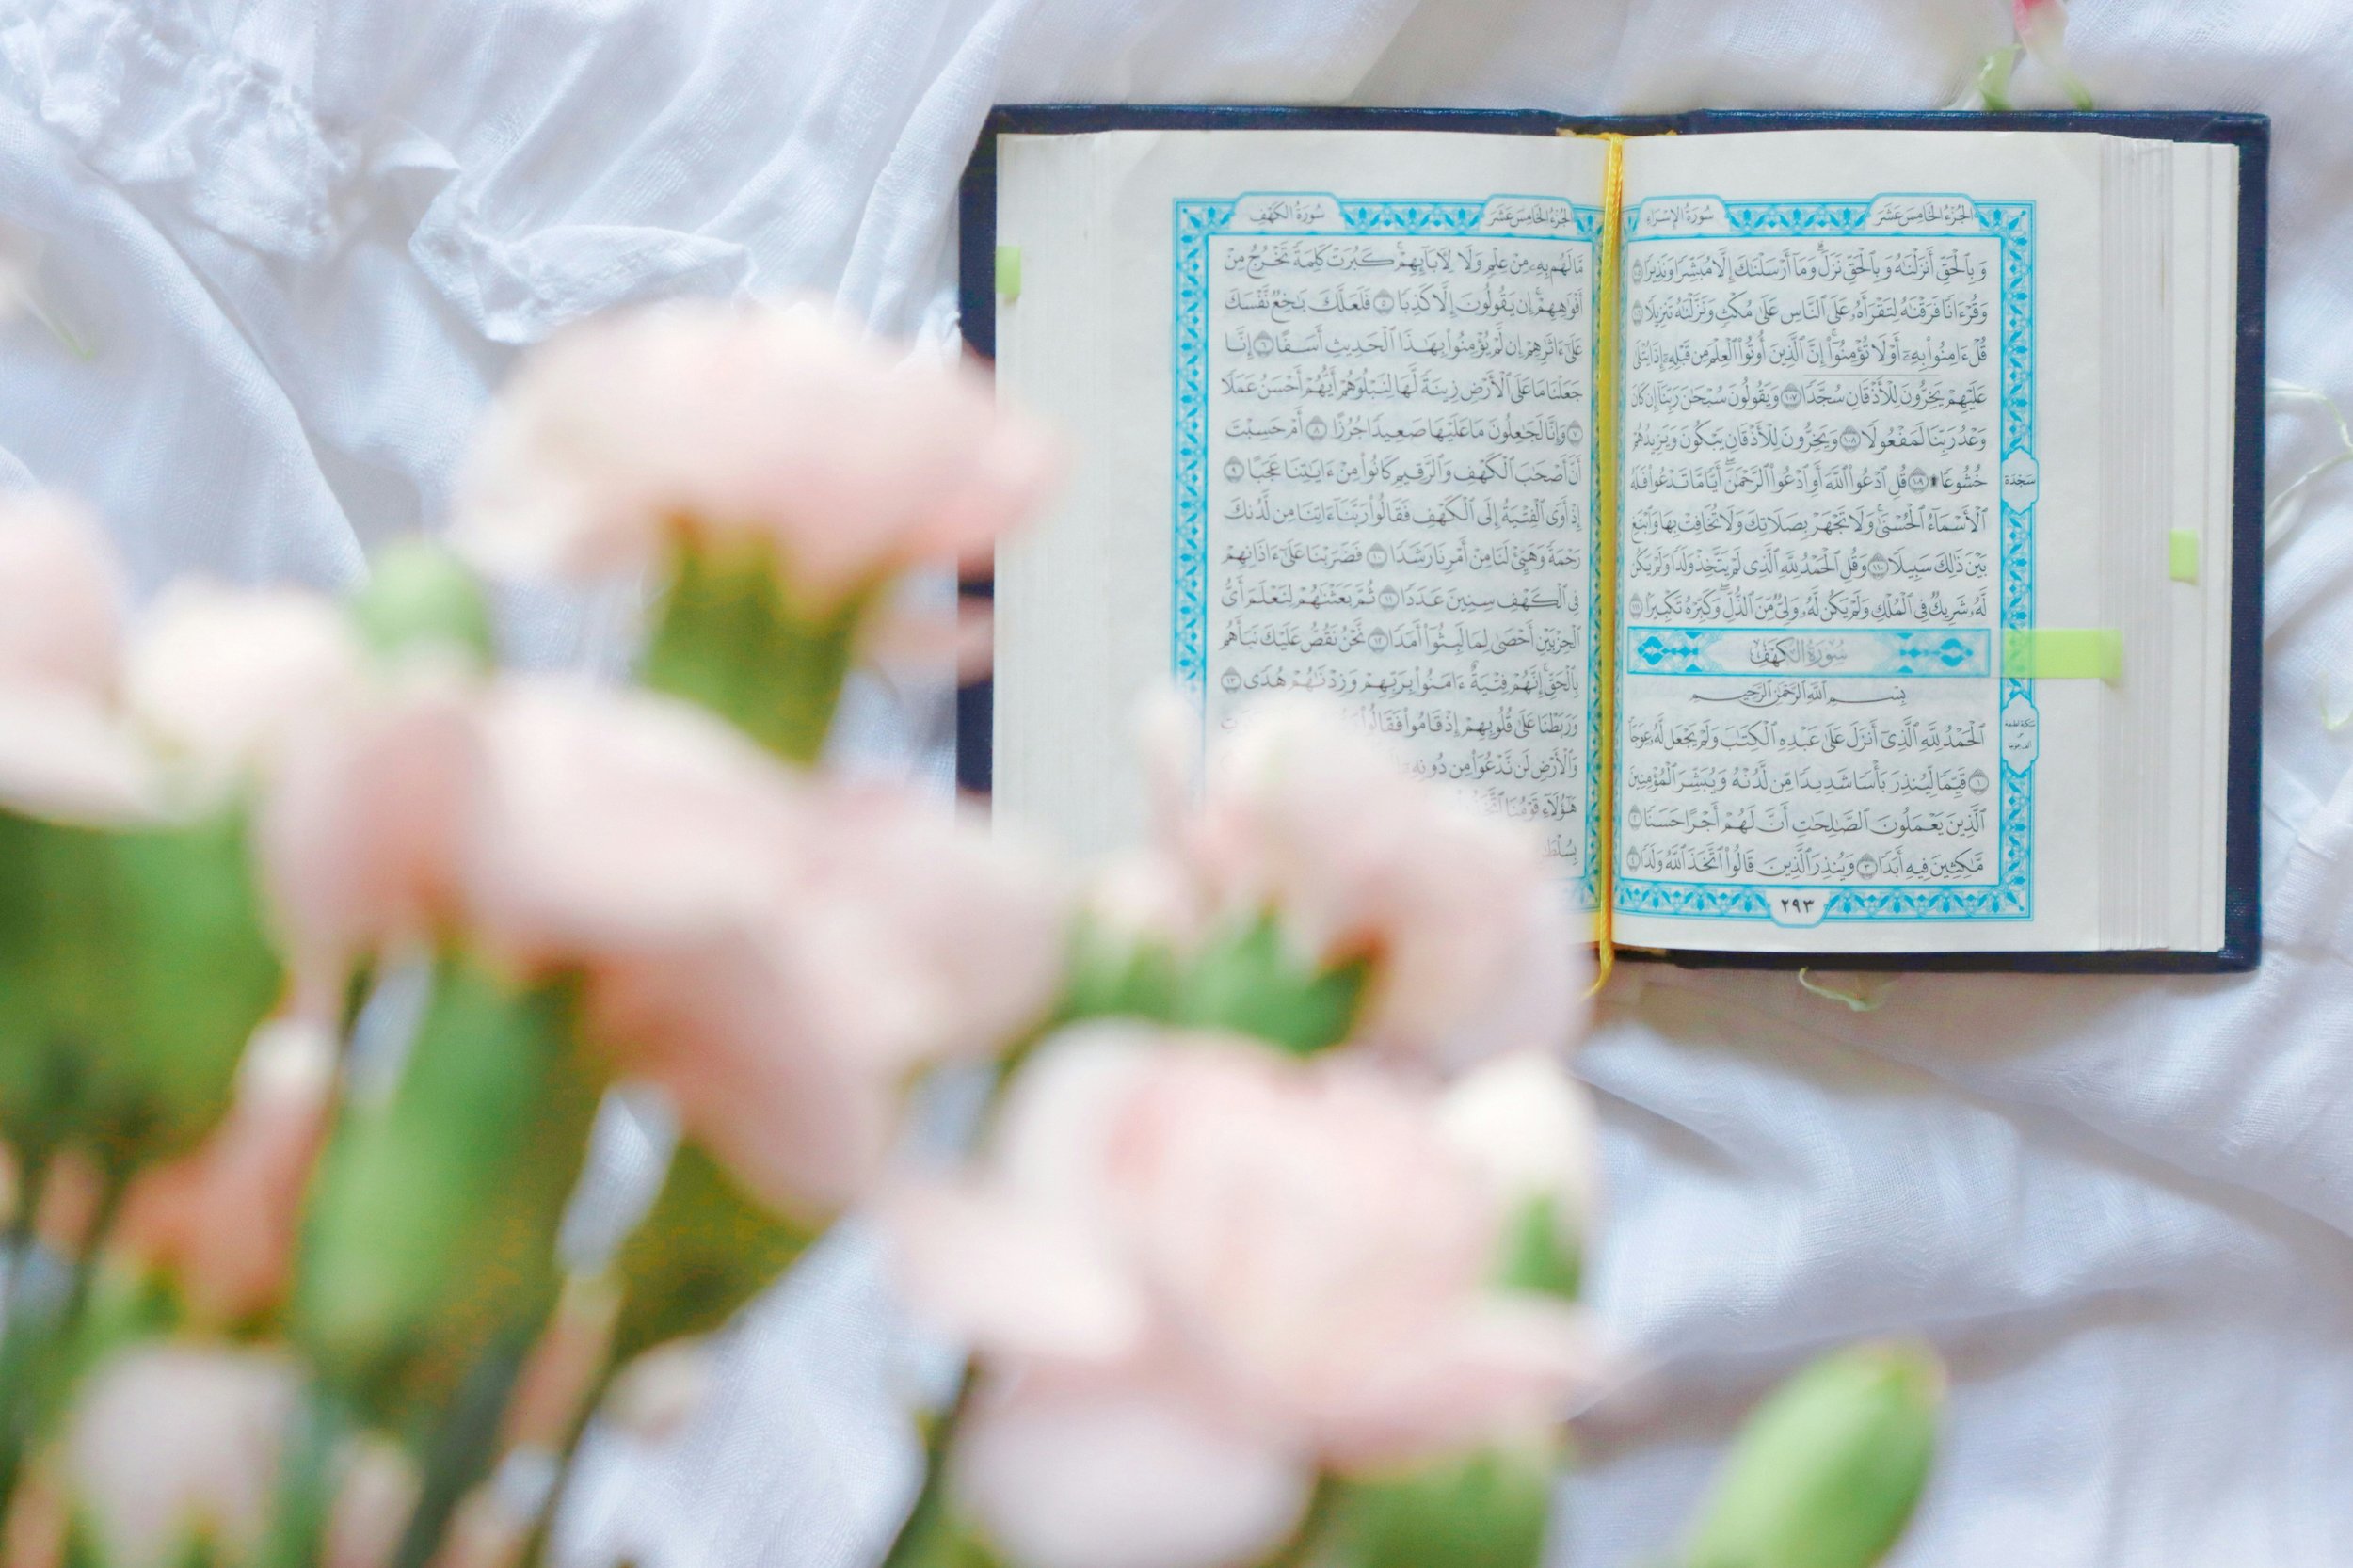 الجُزْءُ الخَامِسَ عَشَرَ
سُورَةُ الإِسْرَاءِ
وَبِٱلْحَقِّ أَنزَلْنَٰهُ وَبِٱلْحَقِّ نَزَلَ ۗ وَمَآ أَرْسَلْنَٰكَ إِلَّا مُبَشِّرًا وَنَذِيرًا ١٠٥
وَقُرْءَانًا فَرَقْنَٰهُ لِتَقْرَأَهُۥ عَلَى ٱلنَّاسِ عَلَىٰ مُكْثٍ وَنَزَّلْنَٰهُ تَنزِيلًا ١٠٦
قُلْ ءَامِنُوا۟ بِهِۦٓ أَوْ لَا تُؤْمِنُوٓا۟ ۚ إِنَّ ٱلَّذِينَ أُوتُوا۟ ٱلْعِلْمَ مِن قَبْلِهِۦٓ إِذَا يُتْلَىٰ
عَلَيْهِمْ يَخِرُّونَ لِلْأَذْقَانِ سُجَّدًا ١٠٧ وَيَقُولُونَ سُبْحَٰنَ رَبِّنَآ إِن كَانَ
وَعْدُ رَبِّنَا لَمَفْعُولًا ١٠٨ وَيَخِرُّونَ لِلْأَذْقَانِ يَبْكُونَ وَيَزِيدُهُمْ
خُشُوعًا ۩ ١٠٩ قُلِ ٱدْعُوا۟ ٱللَّهَ أَوِ ٱدْعُوا۟ ٱلرَّحْمَٰنَ ۖ أَيًّا مَّا تَدْعُوا۟ فَلَهُ
سَجْدَة
ٱلْأَسْمَآءُ ٱلْحُسْنَىٰ ۚ وَلَا تَجْهَرْ بِصَلَاتِكَ وَلَا تُخَافِتْ بِهَا وَٱبْتَغِ
بَيْنَ ذَٰلِكَ سَبِيلًا ١١٠ وَقُلِ ٱلْحَمْدُ لِلَّهِ ٱلَّذِى لَمْ يَتَّخِذْ وَلَدًا وَلَمْ يَكُن
لَّهُۥ شَرِيكٌ فِى ٱلْمُلْكِ وَلَمْ يَكُن لَّهُۥ وَلِىٌّ مِّنَ ٱلذُّلِّ ۖ وَكَبِّرْهُ تَكْبِيرًۢا ١١١
سُورَةُ الكَهْفِ
بِسْمِ ٱللَّهِ ٱلرَّحْمَٰنِ ٱلرَّحِيمِ
ٱلْحَمْدُ لِلَّهِ ٱلَّذِىٓ أَنزَلَ عَلَىٰ عَبْدِهِ ٱلْكِتَٰبَ وَلَمْ يَجْعَل لَّهُۥ عِوَجَا
١ قَيِّمًا لِّيُنذِرَ بَأْسًا شَدِيدًا مِّن لَّدُنْهُ وَيُبَشِّرَ ٱلْمُؤْمِنِينَ
ٱلَّذِينَ يَعْمَلُونَ ٱلصَّٰلِحَٰتِ أَنَّ لَهُمْ أَجْرًا حَسَنًا ٢
مَّٰكِثِينَ فِيهِ أَبَدًا ٣ وَيُنذِرَ ٱلَّذِينَ قَالُوا۟ ٱتَّخَذَ ٱللَّهُ وَلَدًا ٤
٢٩٣
الجُزْءُ الخَامِسَ عَشَرَ
سُورَةُ الكَهْفِ
مَّا لَهُم بِهِۦ مِنْ عِلْمٍ وَلَا لِءَابَآئِهِمْ ۚ كَبُرَتْ كَلِمَةً تَخْرُجُ مِنْ
أَفْوَٰهِهِمْ ۚ إِن يَقُولُونَ إِلَّا كَذِبًا ٥ فَلَعَلَّكَ بَٰخِعٌ نَّفْسَكَ
عَلَىٰٓ ءَاثَٰرِهِمْ إِن لَّمْ يُؤْمِنُوا۟ بِهَٰذَا ٱلْحَدِيثِ أَسَفًا ٦ إِنَّا
جَعَلْنَا مَا عَلَى ٱلْأَرْضِ زِينَةً لَّهَا لِنَبْلُوَهُمْ أَيُّهُمْ أَحْسَنُ عَمَلًا
٧ وَإِنَّا لَجَٰعِلُونَ مَا عَلَيْهَا صَعِيدًا جُرُزًا ٨ أَمْ حَسِبْتَ
أَنَّ أَصْحَٰبَ ٱلْكَهْفِ وَٱلرَّقِيمِ كَانُوا۟ مِنْ ءَايَٰتِنَا عَجَبًا ٩
إِذْ أَوَى ٱلْفِتْيَةُ إِلَى ٱلْكَهْفِ فَقَالُوا۟ رَبَّنَآ ءَاتِنَا مِن لَّدُنكَ
رَحْمَةً وَهَيِّئْ لَنَا مِنْ أَمْرِنَا رَشَدًا ١٠ فَضَرَبْنَا عَلَىٰٓ ءَاذَانِهِمْ
فِى ٱلْكَهْفِ سِنِينَ عَدَدًا ١١ ثُمَّ بَعَثْنَٰهُمْ لِنَعْلَمَ أَىُّ
ٱلْحِزْبَيْنِ أَحْصَىٰ لِمَا لَبِثُوٓا۟ أَمَدًا ١٢ نَّحْنُ نَقُصُّ عَلَيْكَ نَبَأَهُم
بِٱلْحَقِّ ۚ إِنَّهُمْ فِتْيَةٌ ءَامَنُوا۟ بِرَبِّهِمْ وَزِدْنَٰهُمْ هُدًى ١٣
وَرَبَطْنَا عَلَىٰ قُلُوبِهِمْ إِذْ قَامُوا۟ فَقَالُوا۟
وَٱلْأَرْضِ لَن نَّدْعُوَا۟ مِن دُونِهِۦٓ
هَٰٓؤُلَآءِ قَوْمُنَا